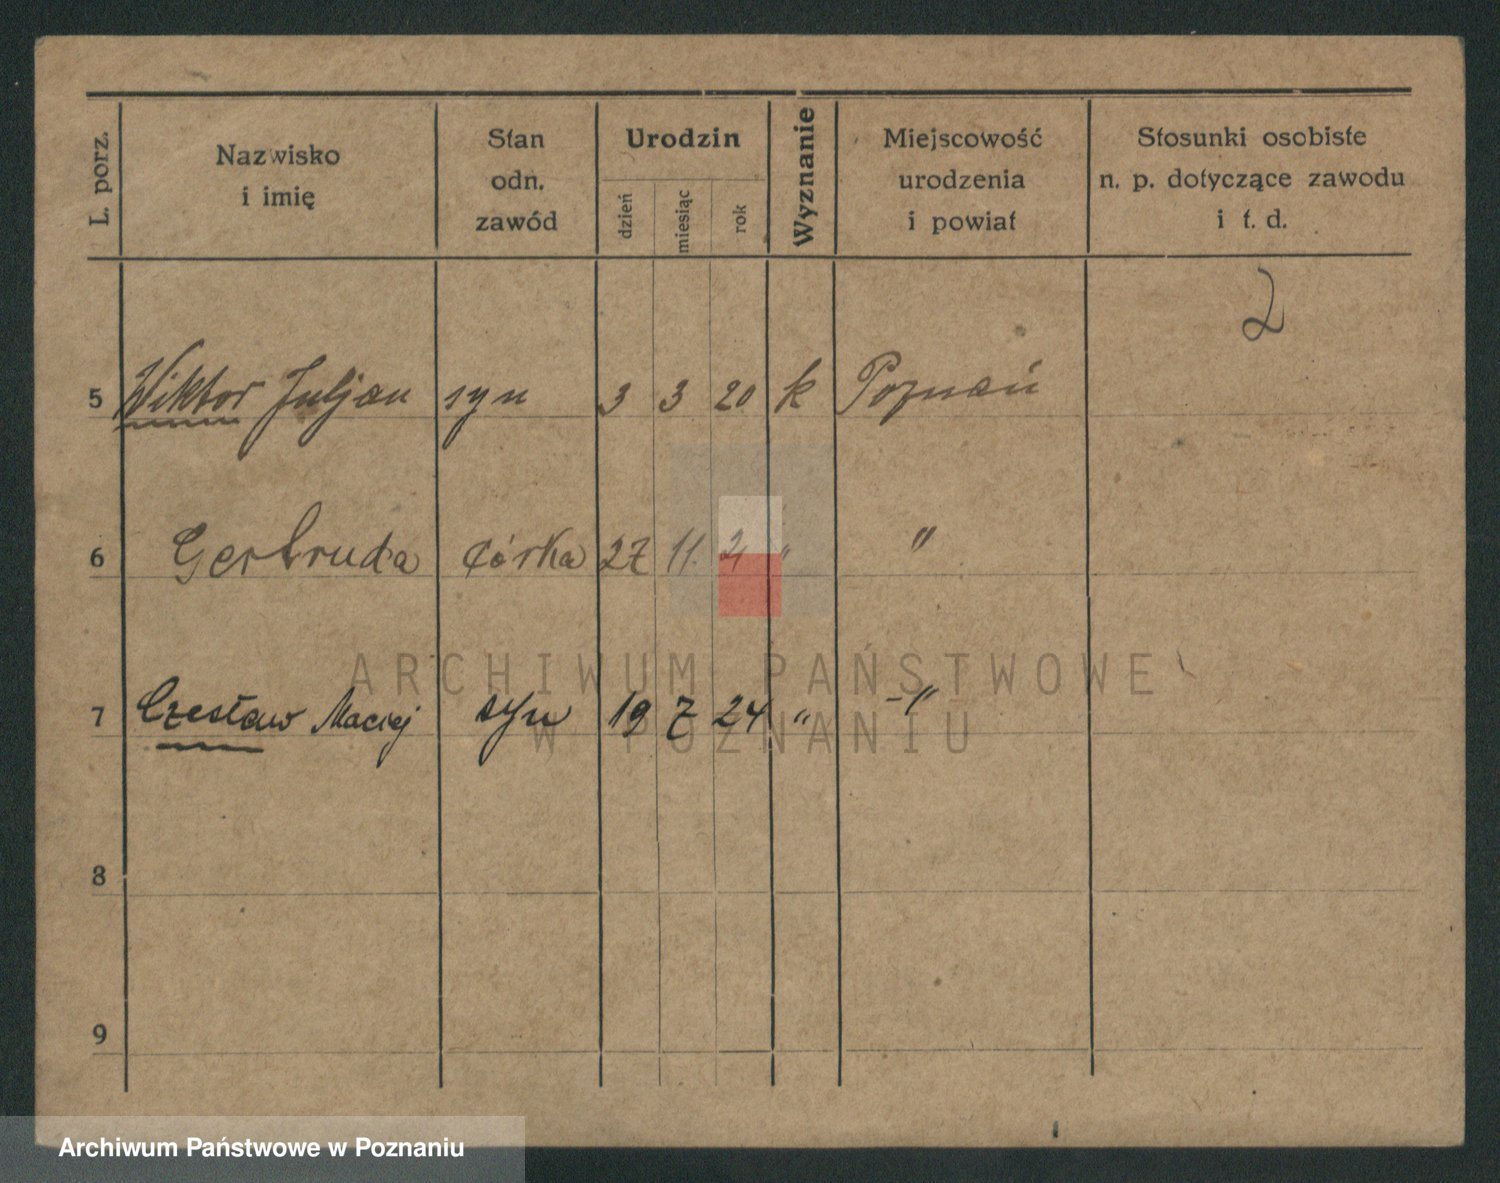 L. porz. Nazwisko i imię Stan odn. zawód Urodzin dzień miesiąc rok Wyznanie Miejscowość urodzenia i powiat Stosunki osobiste n. p. dotyczące zawodu i t. d.
2
5 Wiktor Juljan syn 3 3 20 k Poznań
6 Gertruda córka 27 11. 21 " "
ARCHIWUM PAŃSTWOWE
7 Czesław Maciej syn 19 7 24 " -"
W POZNANIU
8
9
Archiwum Państwowe w Poznaniu